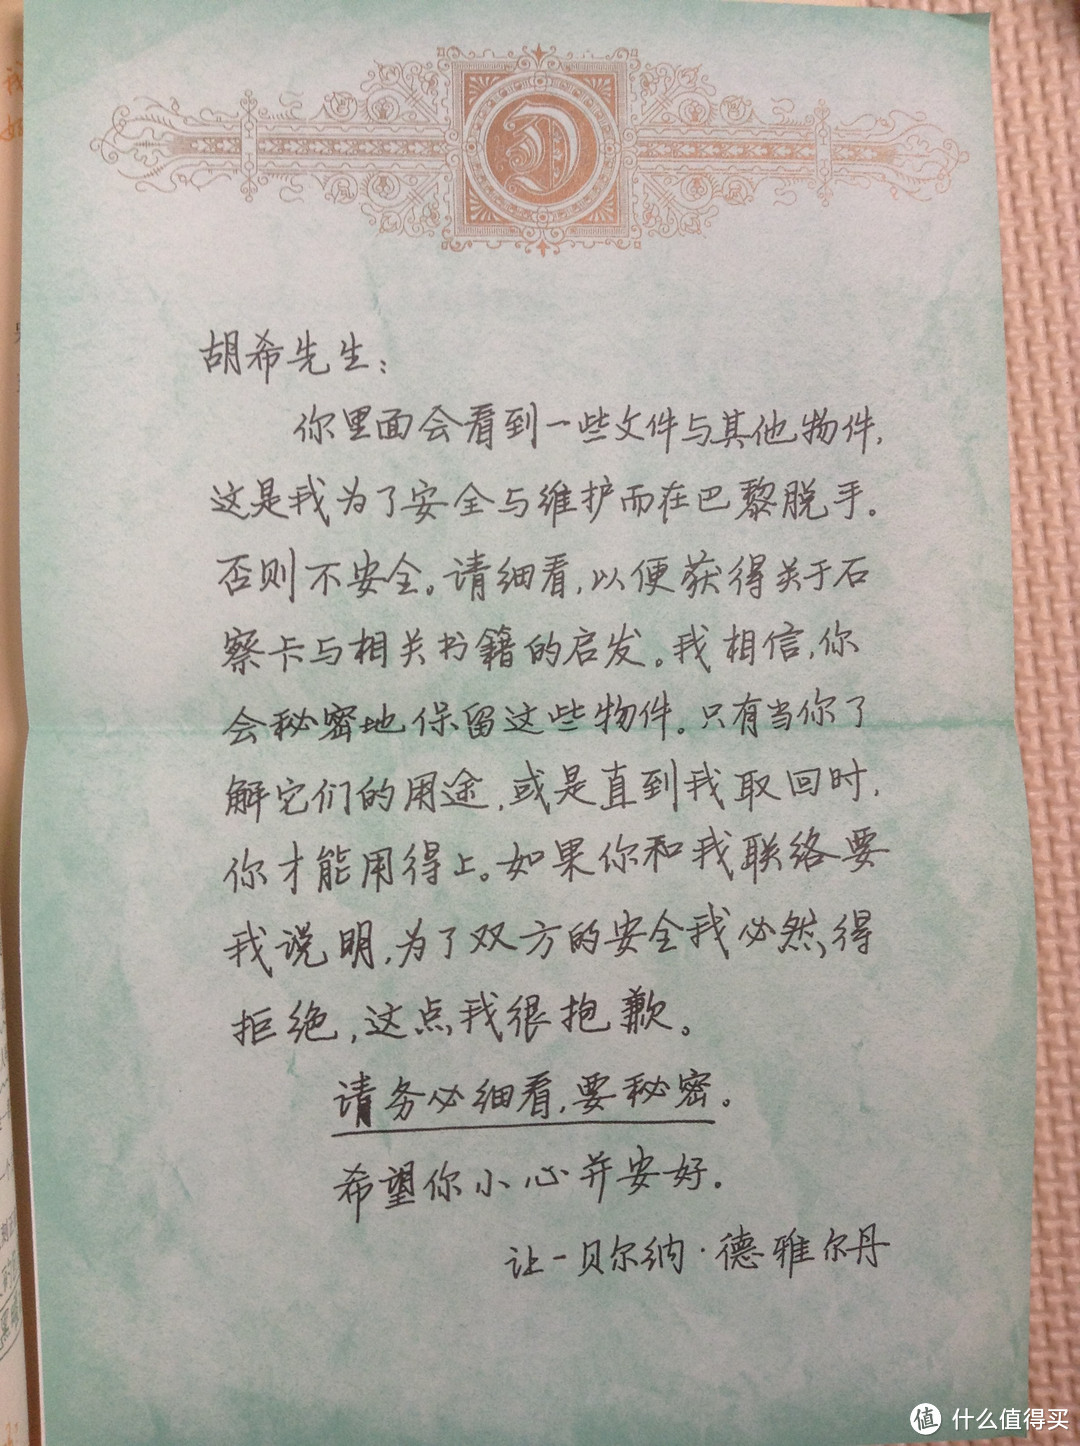 D
胡希先生：
你里面会看到一些文件与其他物件，
这是我为了安全与维护而在巴黎脱手。
否则不安全。请细看，以便获得关于石
察卡与相关书籍的启发。我相信，你
会秘密地保留这些物件。只有当你了
解它们的用途，或是直到我取回时，
你才能用得上。如果你和我联络要
我说明，为了双方的安全我必然得
拒绝，这点我很抱歉。
请务必细看，要秘密。
希望你小心并安好。
让-贝尔纳·德雅尔丹
值 什么值得买